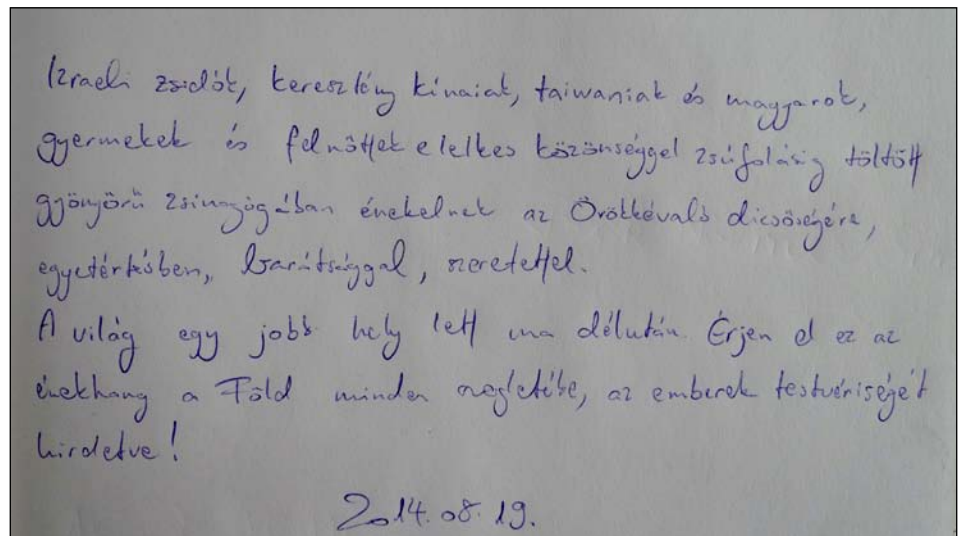 Izraeli zsidók, keresztény kínaiak, taiwaniak és magyarok,
gyermekek és felnőttek lelkes közönséggel zsúfolásig töltött
gyönyörű zsinagógában énekelnek az Örökkévaló dicsőségére,
egyetértésben, barátsággal, szeretettel.
A világ egy jobb hely lett ma délután. Érjen el ez az
énekhang a Föld minden szegletébe, az emberek testvériségét
hirdetve!
2014.08.19.